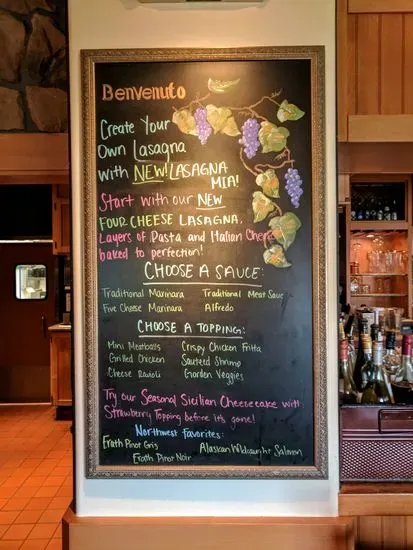 Benvenuto
Create Your
Own Lasagna
with NEW! LASAGNA
MIA!
Start with our NEW
FOUR CHEESE LASAGNA.
Layers of Pasta and Italian Cheese
baked to perfection!
CHOOSE A SAUCE:
Traditional Marinara Traditional Meat Sauce
Five Cheese Marinara Alfredo
CHOOSE A TOPPING:
Mini Meatballs Crispy Chicken Fritta
Grilled Chicken Sauteed Shrimp
Cheese Ravioli Garden Veggies
Try our Seasonal Sicilian Cheesecake with
Strawberry Topping before it's gone!
Northwest Favorites:
Erath Pinot Gris Alaskan Wildcaught Salmon
Erath Pinot Noir